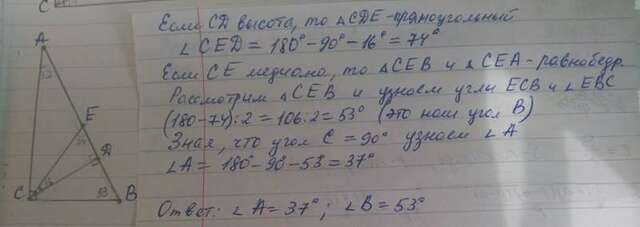 C
A
E
D
C
B
53
Если CD высота, то △CDE - прямоугольный
∠CED = 180° - 90° - 16° = 74°
Если CE медиана, то △CEB и △CEA - равнобедр.
Рассмотрим △CEB и узнаем углы ECB и ∠EBC
(180-74):2 = 106:2 = 53° (это наш угол B)
Зная, что угол C = 90° узнаем ∠A
∠A = 180° - 90° - 53 = 37°
Ответ: ∠A = 37°; ∠B = 53°